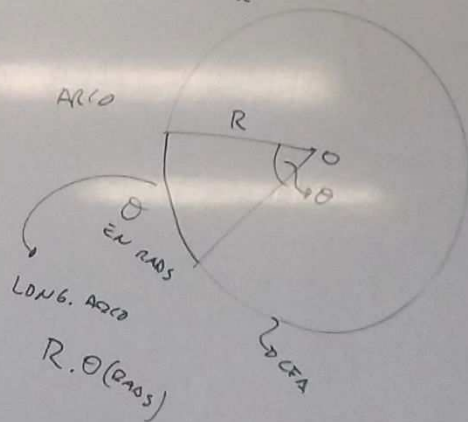 ARCO
R
O
θ
θ
EN RADS
LONG. ARCO
R.θ(RADS)
CFA